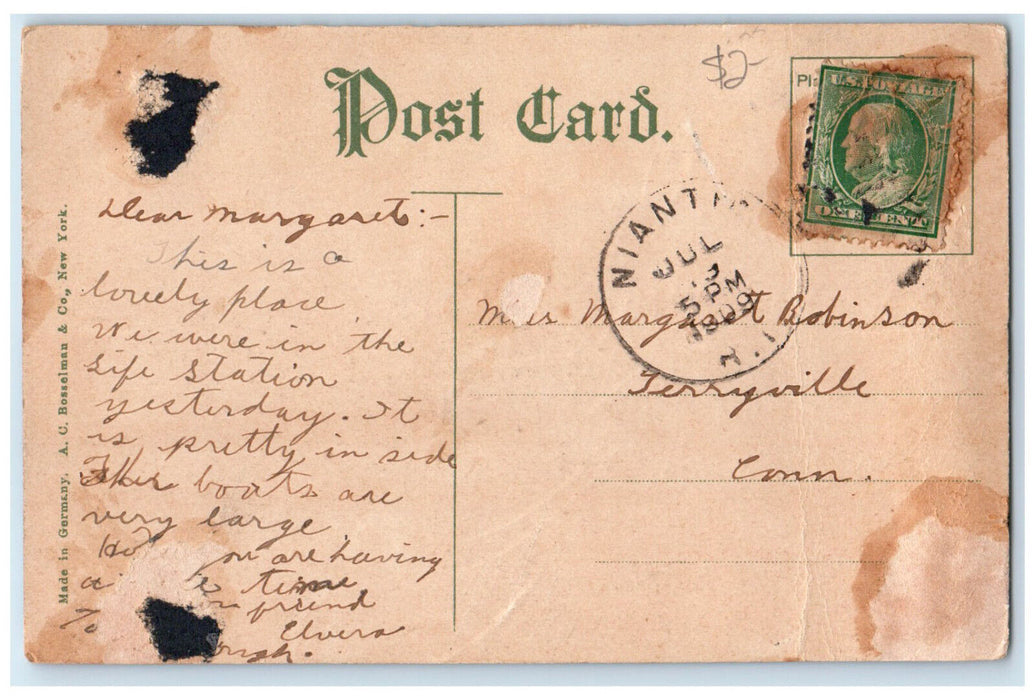 $2-
Post Card.
Pla
U.S. POSTAGE
ONE CENT
NIANTI
JUL
5 PM
1909
R.I.
Made in Germany. A. C. Bosselman & Co., New York.
Dear Margaret:-
This is a
lovely place
We were in the
Life Station
yesterday. It
is pretty in side
Their boats are
very large
you are having
a time
friend
Elvera
Miss Margaret Robinson
Terryville
Conn.